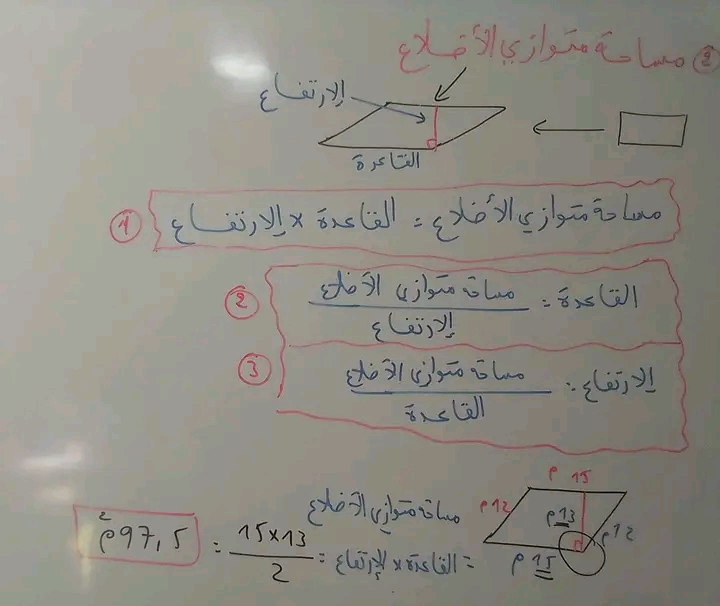 ② مساحة متوازي الأضلاع
الإرتفاع
القاعدة
① مساحة متوازي الأضلاع = القاعدة × الإرتفاع
② القاعدة = مساحة متوازي الأضلاع / الإرتفاع
③ الإرتفاع = مساحة متوازي الأضلاع / القاعدة
15 م
12 م
13 م
12 م
15 م
مساحة متوازي الأضلاع
= القاعدة × الإرتفاع = 15×13 / 2 = 97,5 م²